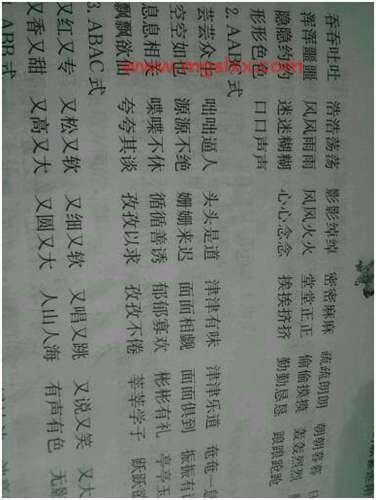 吞吞吐吐 浩浩荡荡 影影绰绰 密密麻麻 疏疏朗朗 朝朝暮暮
浑浑噩噩 风风雨雨 风风火火 堂堂正正 偷偷摸摸 轰轰烈烈
隐隐约约 迷迷糊糊 心心念念 挨挨挤挤 勤勤恳恳 踉踉跄跄
形形色色 口口声声
2. AABC 式
芸芸众生 咄咄逼人 头头是道 津津有味 津津乐道 奄奄一息
空空如也 源源不绝 姗姗来迟 面面相觑 面面俱到 振振有
息息相关 喋喋不休 循循善诱 郁郁寡欢 彬彬有礼 亭亭玉
飘飘欲仙 夸夸其谈 孜孜以求 孜孜不倦 莘莘学子 跃跃欲
3. ABAC 式
又红又专 又松又软 又细又软 又唱又跳 又说又笑 又大
又香又甜 又高又大 又圆又大 人山人海 有声有色 无
ABB 式